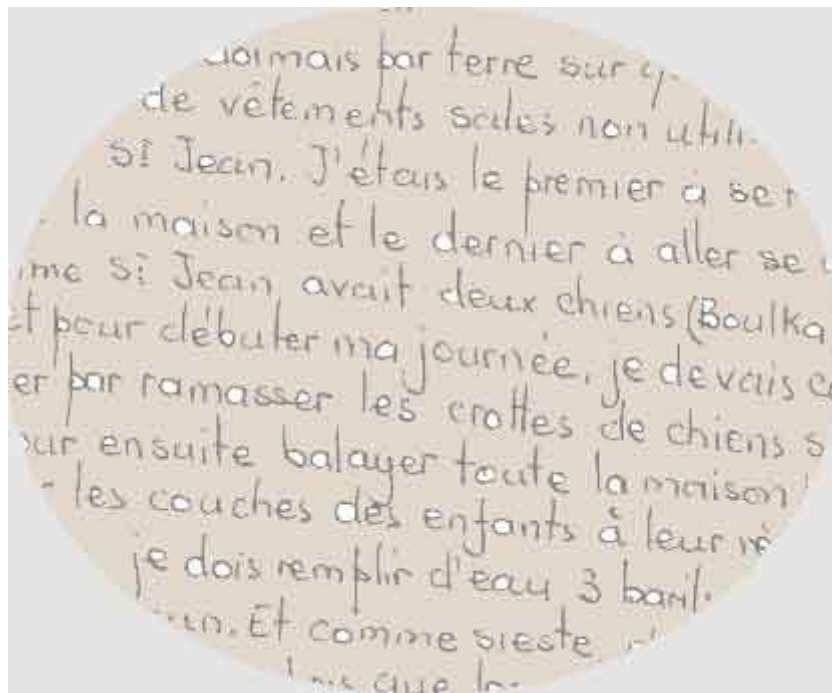 par terre sur
de vêtements sales non
si Jean. J'étais le premier à
la maison et le dernier à aller se
si Jean avait deux chiens (Boulka
pour débuter ma journée, je devais
par ramasser les crottes de chiens
ensuite balayer toute la maison
les couches des enfants à leur
je dois remplir d'eau 3
Et comme sieste
que